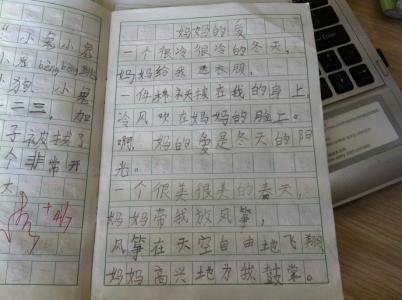 小
小
小狗 小
二三，加
子被拔了
个非常开
妈妈的爱
一个很冷很冷的冬天，
妈妈给我送衣服，
一件 在我的身上
冷风吹在妈妈的脸上。
啊，妈的爱是冬天的阳
光。
一个很美很美的春天，
妈妈带我放风筝，
风筝在天空自由地飞翔
妈妈高兴地为我鼓掌。